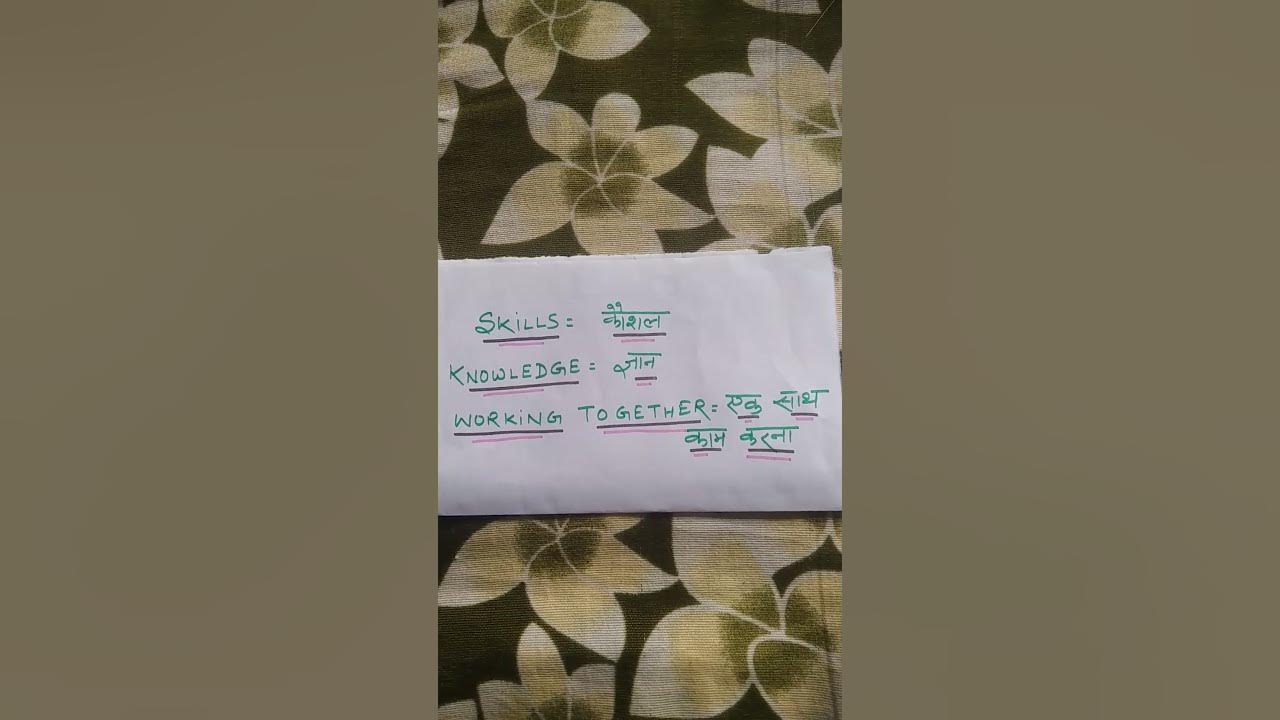 SKiLLS = कौशल
KNOWLEDGE = ज्ञान
WORKiNG TOGETHER = एक साथ
काम करना